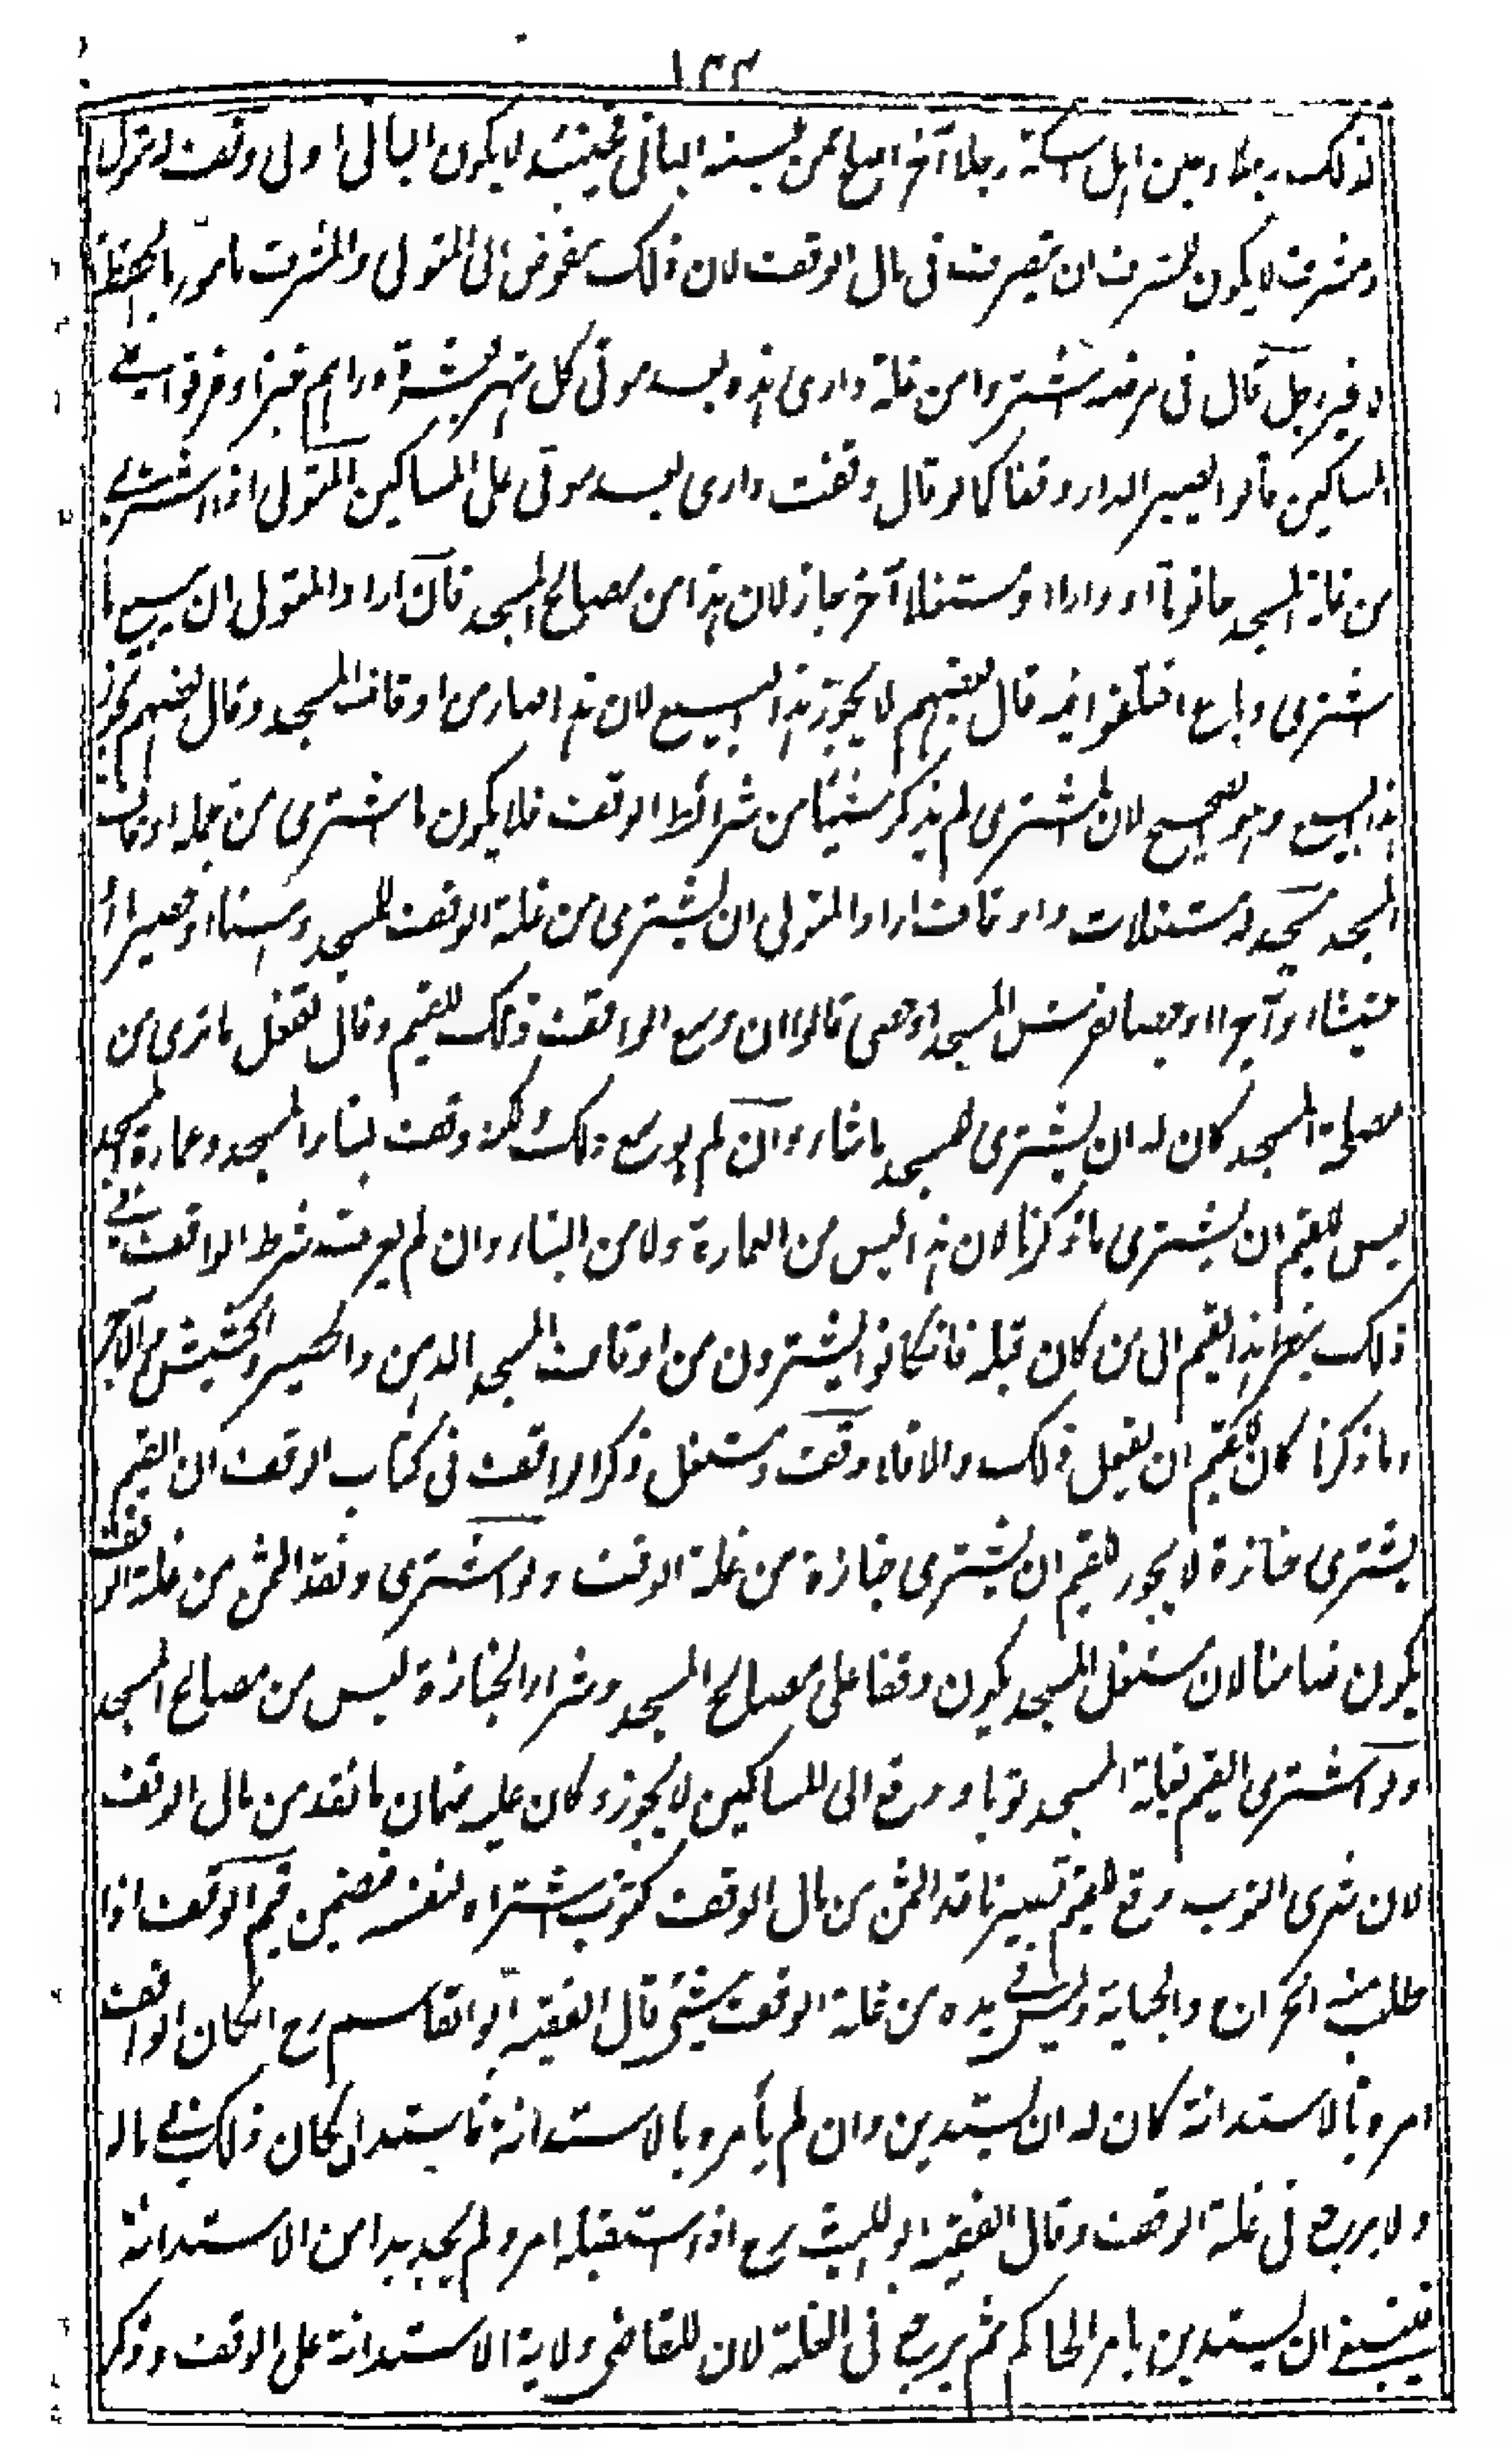 ١٣٣
لذلك رجلا وعين اهل السكة رجلا آخر اصلح ممن عينه البانى فحينئذ لا يكون البانى اولى وقف له متول
ومشرف لا يكون للمشرف ان يتصرف فى مال الوقف لان ذلك مفوض الى المتولى والمشرف مأمور بالحفظ
لا غير رجل قال فى مرضه اشتروا من غلة دارى هذه بعد موتى كل شهر بعشرة دراهم خبزا وفرقوا على
المساكين قالوا يصير الدار وقفا كما لو قال وقفت دارى بعد موتى على المساكين المتولى اذا اشترى
من غلة المسجد حانوتا او دارا او مستغلا آخر جاز لان هذا من مصالح المسجد فان اراد المتولى ان يبيع ما
اشترى وباع اختلفوا فيه قال بعضهم لا يجوز هذا البيع لان هذا صار من اوقاف المسجد وقال بعضهم يجوز
هذا البيع وهو الصحيح لان المشترى لم يذكر شيئا من شرائط الوقف فلا يكون ما اشترى من جملة اوقاف
المسجد مسجد له مستغلات واوقاف اراد المتولى ان يشترى من غلة الوقف للمسجد دهنا او حصيرا او
حشيشا او آجرا او جصا لفرش المسجد او حصى قالوا ان وسع الواقف ذلك للقيم وقال تفعل ما ترى من
مصلحة المسجد كان له ان يشترى للمسجد ما شاء وان لم يوسع ذلك ولكنه وقف لبناء المسجد وعمارة المسجد
ليس للقيم ان يشترى ما ذكرنا لان هذا ليس من العمارة ولا من البناء وان لم يعرف شرط الواقف فى
ذلك ينظر هذا القيم الى من كان قبله فان كانوا يشترون من اوقاف المسجد الدهن والحصير والحشيش والآجر
وما ذكرنا كان للقيم ان يفعل ذلك والا فلا وقف مستغل ذكر الواقف فى كتاب الوقف ان القيم
يشترى جنازة لا يجوز للقيم ان يشترى جنازة من غلة الوقف ولو اشترى ونقد الثمن من غلة الوقف
يكون ضامنا لان مستغل المسجد يكون وقفا على مصالح المسجد وشراء الجنازة ليس من مصالح المسجد
ولو اشترى القيم بغلة المسجد ثوبا ودفع الى المساكين لا يجوز وكان عليه ضمان ما نقد من مال الوقف
لان شرى الثوب وقع للقيم فيصير ناقد الثمن من مال الوقف لثوب اشتراه لنفسه فيضمن قيم الوقف اذا
طلب منه الخراج والجباية وليس فى يده من غلة الوقف شئ قال الفقيه ابو القاسم رح ان كان الواقف
امره بالاستدانة كان له ان يستدين وان لم يأمره بالاستدانة فاستدان كان ذلك فى ماله
ولا يرجع فى غلة الوقف وقال الفقيه ابو الليث رح اذا استقبله امر ولم يجد بدا من الاستدانة
فينبغى ان يستدين بامر الحاكم ثم يرجع فى الغلة لان للقاضى ولاية الاستدانة على الوقف وذكر